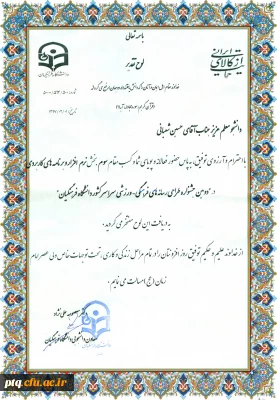 باسمه تعالی
لوح تقدیر
دانشجو معلم عزیز جناب آقای حسین شعبانی
با احترام و آرزوی توفیق، به پاس حضور فعالانه و پویای شما و کسب مقام سوم بخش نرم افزار و برنامه های کاربردی
در "دومین جشنواره طراحی رسانه های فرهنگی، ورزشی سراسر کشور دانشگاه فرهنگیان"
به دریافت این لوح مفتخر می گردید.
از خداوند علیم و حکیم توفیق روز افزونتان را در تمام مراحل زندگی و کاری، تحت توجهات خاص ولی عصر امام
زمان (عج) مسالت می نمایم.
معاون دانشجویی دانشگاه فرهنگیان
ptq.cfu.ac.ir